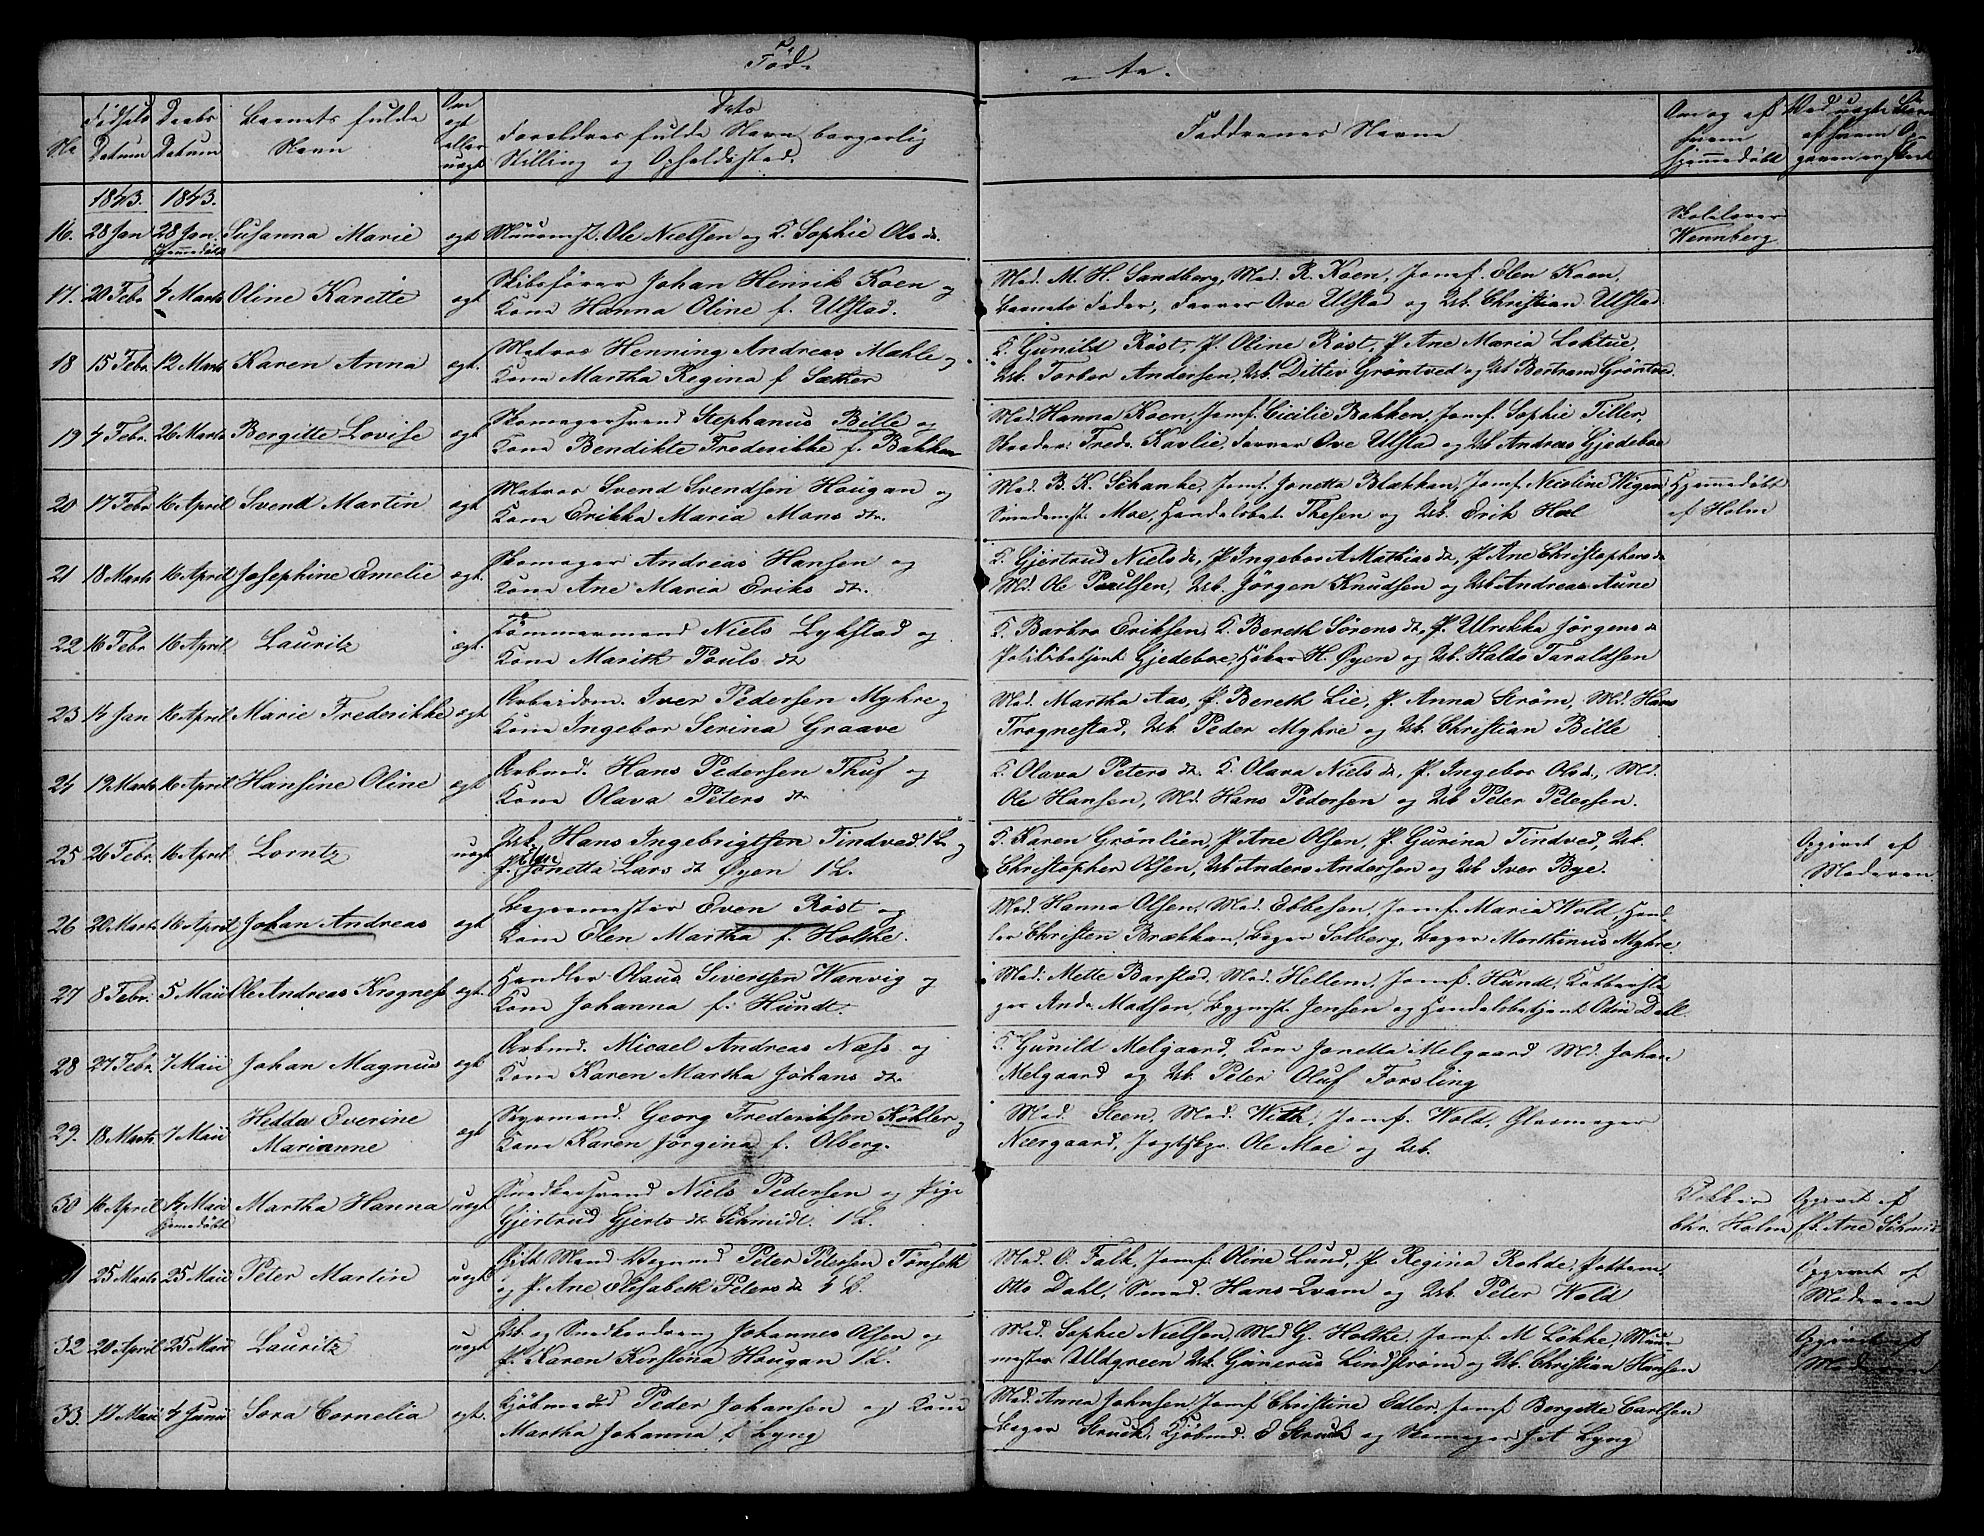 Fød-
-te.
No
Fødsels Datum
Daabs Datum
Barnets fulde Navn
Om ægt eller uægt
Dets Forældres fulde Navn borgerlig Stilling og Opholdssted.
Faddrenes Navne
Om og af hvem hjemmedøbt
1843. 1843.
16. 28 Jan 28 Jan hjemmedøbt Susanna Marie ægt Muurmst. Ole Nielsen og K. Sophie Ols dr. Skolelærer Wennberg
17. 20 Febr 4 Marts Oline Karette ægt Skibsfører Johan Henrik Koen og
Kone Hanna Oline f. Ulstad.
Mad. M. H. Sandberg, Mad. R. Koen, Jomf. Elen Koen,
Barnets Fader, Farver Ove Ulstad og Usk. Christian Ulstad
18 15 Febr. 12 Marts Karen Anna ægt. Matros Henning Andreas Mæhle og
Kone Martha Regina f Sæther
K. Gunild Røst, P. Olina Røst, P Ane Maria Loktue,
Usk. Torber Andersen, Usk. Ditlev Grøntved og Usk Bertram Grøntved
19 4 Febr. 26 Marts Bergitte Lovise ægt Skomagersvend Stephanus Bille og
Kone Bendikte Frederikke f. Bakken
Mad. Hanna Koen, Jomf. Cicilie Bakken, Jomf. Sophie Tiller,
Skræder Fred. Kavlie, Farver Ove Ulstad og Usk Andreas Gjedeboe
20 17 Febr 16 April Svend Martin ægt Matros Svend Svendsen Hougan og
Kone Erikka Maria Mons dtr.
Mad. B. K. Schanke, Jomf. Jonetta Blakkan, Jomf Nicoline Wigen
Smedemst. Moe, Handelsbet. Thesen og Usk. Erik Hoel
Hjemmedøbt
af Holm
21 18 Marts 16 April Josephine Emelie ægt. Skomager Andreas Hansen og
Kone Ane Maria Eriks dr.
K. Gjertrud Niels dr, P Ingebor A Mathias dr, P. Ane Christophers dr
Md. Ole Paulsen, Usk. Jörgen Knudsen og Usk Andreas Aune
22 16 Febr 16 April Lauritz ægt. Tømmermand Niels Lykstad og
Kone Marith Pouls dr
K. Barbro Eriksen K. Bereth Sörens dr, P. Ulrikka Jörgens dr
Politibetjent Gjedeboe, Høker H. Øyen og Usk. Haldo Taraldsen
23 14 Jan 16 April Marie Frederikke ægt Arbeidsm. Iver Pedersen Myhre og
Kone Ingebor Serina Graave
Mad. Martha Aas, P. Bereth Lie, P. Anna Strøm, Md. Hans
Trognestad, Usk. Peder Myhre og Usk. Christian Bille
24 19 Marts 16 April Hansine Oline ægt Arbmd. Hans Pedersen Thuf og
Kone Olava Peters dr
K. Olava Peters dr. K. Olava Niels dr, P. Ingebor Ols d., Md.
Ole Hansen, Md. Hans Pedersen og Usk Peter Petersen.
25 26 Febr. 16 April Lorntz uægt Usk. Hans Ingebrigtsen Tindved. 1 L og
P. Elen Jonetta Lars dr Øyen 1 L.
K. Karen Grønlien, P. Ane Olsen, P. Gurina Tindved, Usk.
Christopher Olsen, Usk Anders Andersen og Usk Iver Bye.
Opgivet af
Moderen
26 20 Marts 16 April Johan Andreas ægt Bagermester Even Röst og
Kone Elen Martha f. Holtke.
Mad. Hanna Olsen, Mad. Ebbesen, Jomf. Maria Wold, Hand-
ler Christen Brækkan, Bager Solberg, Bager Marthinus Myhre
27 8 Febr. 5 Maii Ole Andreas Krogness ægt. Handler Olaus Sivertsen Wanvig og
Kone Johanna f. Hundt.
Mad. Mette Barstad, Mad. Hellem, Jomf. Hundt, Kobbersla
ger Andr Madsen, Bygmst. Jensen og Handelsbetjent Odin Dahl
28 27 Febr. 7 Maii Johan Magnus ægt Arbmd. Micael Andreas Næss og
Kone Karen Martha Johans dr.
K. Gunild Melgaard, Kone Jonetta Melgaard Md. Johan
Melgaard og Usk. Peter Oluf Forsling
29. 18 Marts 7 Maii Hedda Everine
Marianne ægt Styrmand. Georg Frederiksen Köhler og
Kone Karen Jörgina f. Olberg.
Mad. Steen, Mad. With, Jomf. Wold, Glasmager
Nærgaard, Jagtskpr. Ole Moe og Usk.
30 16 April 14 Maii hjemmedøbt Martha Hanna uægt Snedkersvend Niels Pedersen og Pige
Gjertrud Gjerts dr Schmidt. 1 L.
Chr. Holm
Opgivet af
fr. Ane Schmidt
25 Marts 25 Maii Peter Martin uægt Gift Mand Vognmd Peter Petersen Tönseth
og P. Ane Elisabeth Peters dr L.
Mad. O. Falk, Jomf. Oline Lund, P Regina Rohde, Pottem.
Otto Dahl, Smed. Hans Qvam og Usk. Peter Wold
Opgivet af
Moderen
32 20 April 25 Maii Lauritz uægt Usk. og Snedkerdreng Johannes Olsen og
P. Karen Kirstina Hougan 1 L.
Mad. Sophie Nielsen, Mad G. Holtke, Jomf. M Løkke, Muur-
mester Ulldgreen Usk. Gunerus Lindstrøm og Usk. Christian Hansen
Opgivet af
Moderen
33. 17 Maii 4 Junii Sora Cornelia ægt. Kjöbmand Peder Johansen og Kone
Martha Johanna f Lyng
Mad. Anna Johnsen Jomf Christine Edler, Jomf Bergette Carlsen
Bager Struck, Kjöbmd. E Struck og Skomager J. A Lyng